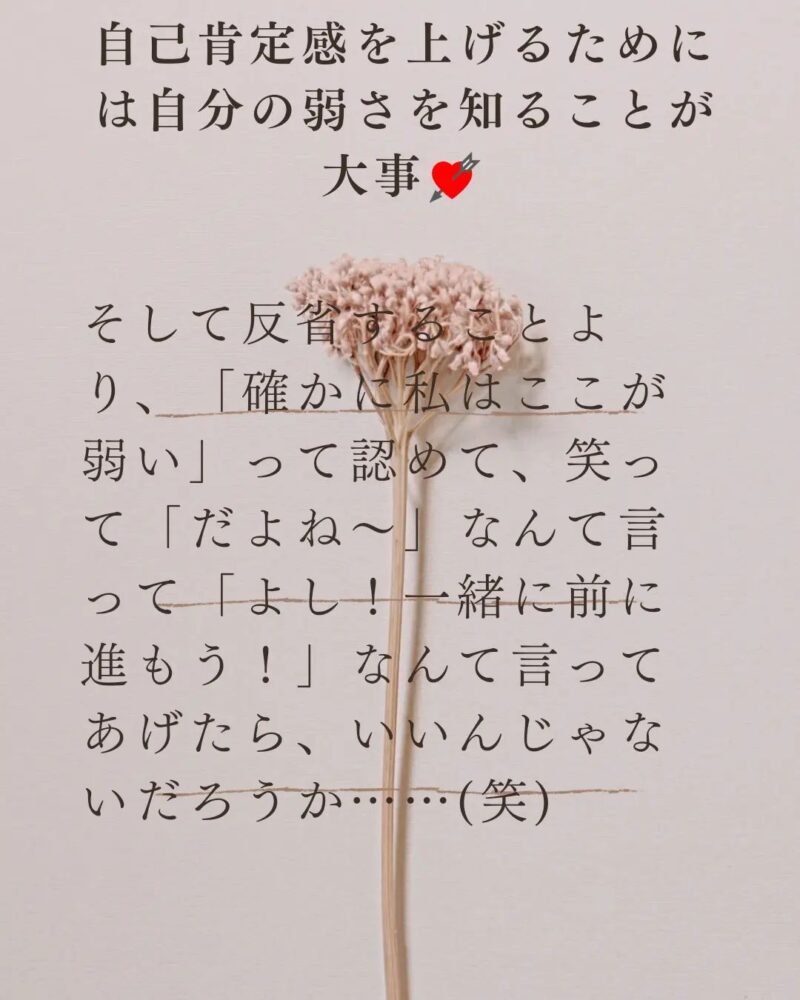 自己肯定感を上げるために
は自分の弱さを知ることが
大事💘
そして反省することよ
り、「確かに私はここが
弱い」って認めて、笑っ
て「だよね〜」なんて言
って「よし！一緒に前に
進もう！」なんて言って
あげたら、いいんじゃな
いだろうか……(笑)